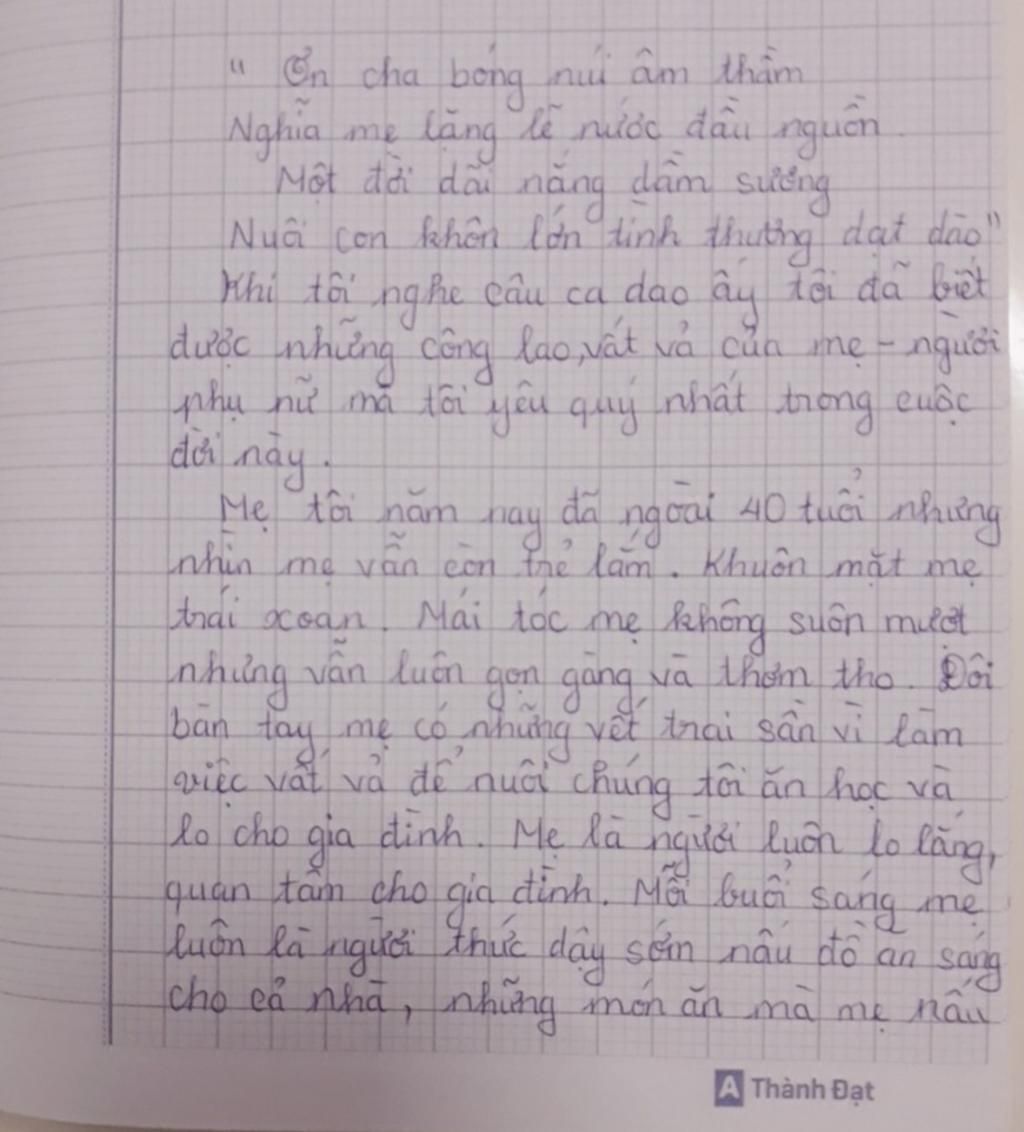 " Ơn cha bóng núi âm thầm
Nghĩa mẹ lặng lẽ nước đầu nguồn.
Một đời dãi nắng dầm sương
Nuôi con khôn lớn tình thương dạt dào"
Khi tôi nghe câu ca dao ấy tôi đã biết
được những công lao, vất vả của mẹ - người
phụ nữ mà tôi yêu quý nhất trong cuộc
đời này.
Mẹ tôi năm nay đã ngoài 40 tuổi nhưng
nhìn mẹ vẫn còn trẻ lắm. Khuôn mặt mẹ
trái xoan. Mái tóc mẹ không suôn mượt
nhưng vẫn luôn gọn gàng và thơm tho. Đôi
bàn tay mẹ có những vết trai sần vì làm
việc vất vả để nuôi chúng tôi ăn học và
lo cho gia đình. Mẹ là người luôn lo lắng,
quan tâm cho gia đình. Mỗi buổi sáng mẹ
luôn là người thức dậy sớm nấu đồ ăn sáng
cho cả nhà, những món ăn mà mẹ nấu
A Thành Đạt